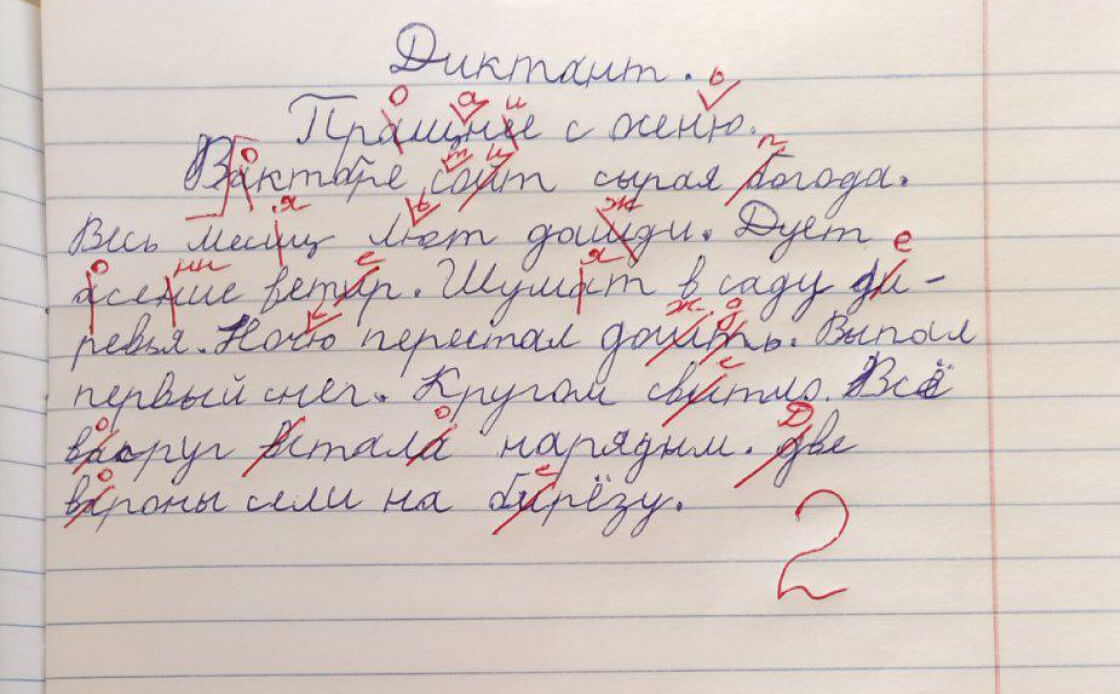 Диктант.
Пращнее с осеню.
Вактябре сойт сырая богода.
Весь месиц лют дошди. Дует
асение ветир. Шумат в саду ди-
ревья. Ночю перестал дошть. Выпал
первый снег. Кругом свитло. Всё
вакруг встала нарядым. две
вароны сели на бирёзу.
2